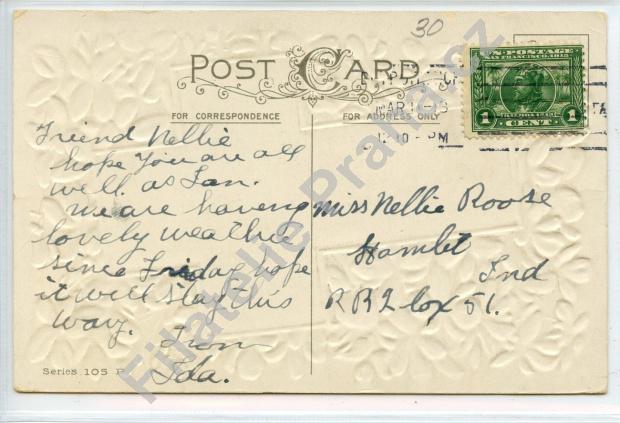 30
POST CARD
U.S. POSTAGE
SAN FRANCISCO 1915
1 CENT 1
MAR
12 30 PM
FOR CORRESPONDENCE
FOR ADDRESS ONLY
Friend Nellie
hope you are all
well as I am.
we are having
lovely weather
since Friday hope
it will stay this
way.
From
Ida.
Miss Nellie Roose
Hamlet
Ind
R R 2 box 51.
Series 105
Filatelie Praha.cz